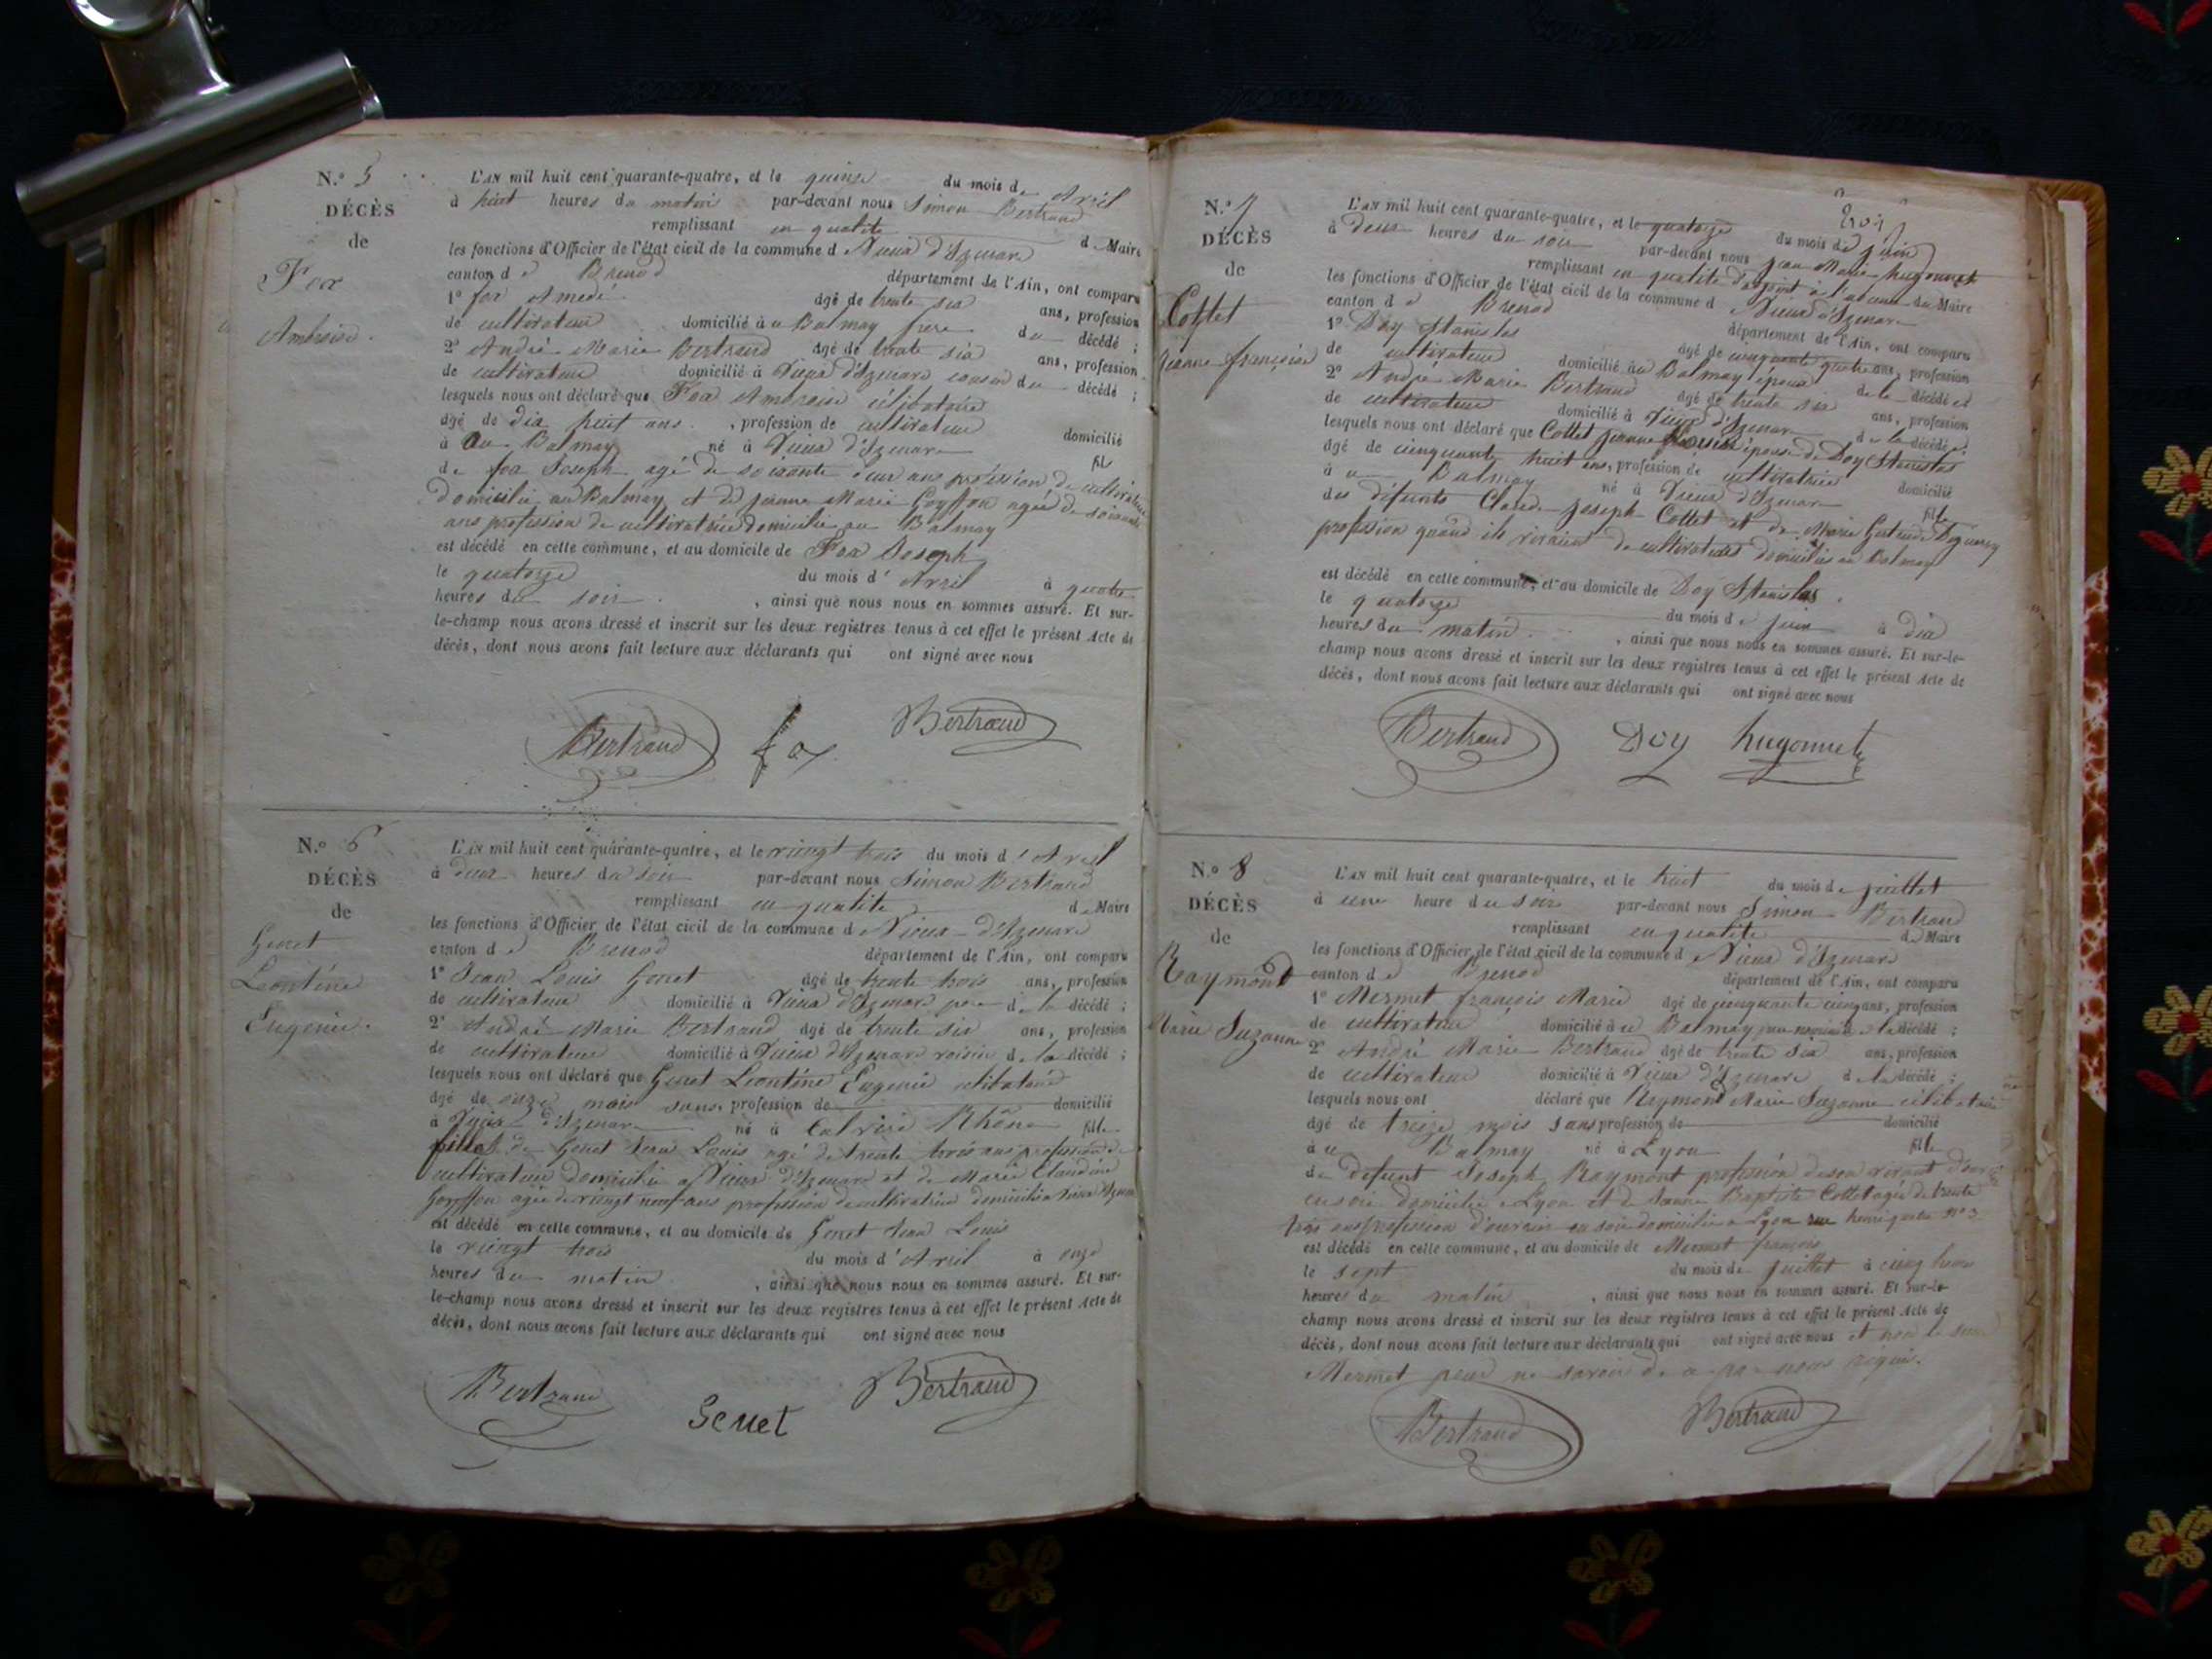 N.º 5
DÉCÈS
de
Fox
Ambroise.
L'AN mil huit cent quarante-quatre, et le quinze du mois d' Avril
à huit heures du matin par-devant nous Simon Bertrand
remplissant en qualité de Maire
les fonctions d'Officier de l'état civil de la commune d Vieux d'Izenave
canton d e Brenod département de l'Ain, ont comparu
1º fox Amedé âgé de trente six ans, profession
de cultivateur domicilié à u Balmay frere du décédé ;
2º André Marie Bertrand âgé de trente six ans, profession
de cultivateur domicilié à Vieux d'Izenave cousin du décédé ;
lesquels nous ont déclaré que Fox Ambroise célibataire
âgé de dix huit ans. , profession de cultivateur domicilié
à Au Balmay né à Vieux d'Izenave fils
de fox Joseph agé de soixante ans profession de cultivateur
domicilié au Balmay et de jeanne Marie Goyffon agée de soixante
ans profession de cultivatrice domiciliée au Balmay
est décédé en cette commune, et au domicile de Fox Joseph
le quatorze du mois d' Avril à quatre
heures du soir. , ainsi que nous nous en sommes assuré. Et sur-
le-champ nous avons dressé et inscrit sur les deux registres tenus à cet effet le présent Acte de
décès, dont nous avons fait lecture aux déclarants qui ont signé avec nous
Bertrand fox Bertrand
N.º 6
DÉCÈS
de
Genet
Leontine
Eugenie.
L'AN mil huit cent quarante-quatre, et le vingt trois du mois d' Avril
à deux heures du soir par-devant nous Simon Bertrand
remplissant en qualité de Maire
les fonctions d'Officier de l'état civil de la commune d Vieux d'Izenave
canton d e Brenod département de l'Ain, ont comparu
1º Jean Louis Genet âgé de trente trois ans, profession
de cultivateur domicilié à Vieux d'Izenave pere de la décédé ;
2º André Marie Bertrand âgé de trente six ans, profession
de cultivateur domicilié à Vieux d'Izenave voisin de la décédé ;
lesquels nous ont déclaré que Genet Leontine Eugenie celibataire
âgé de onze mois sans, profession de domicilié
à Vieux d'Izenave né à Caluire Rhône fille
de Genet Jean Louis agé de trente trois ans profession de
cultivateur domicilié a Vieux d'Izenave et de Marie Claudine
Goyffon agée de vingt neuf ans profession de cultivatrice domiciliée a Vieux d'Izenave
est décédé en cette commune, et au domicile de Genet Jean Louis
le vingt trois du mois d' Avril à onze
heures du matin , ainsi que nous nous en sommes assuré. Et sur-
le-champ nous avons dressé et inscrit sur les deux registres tenus à cet effet le présent Acte de
décès, dont nous avons fait lecture aux déclarants qui ont signé avec nous
Bertrand Genet Bertrand
N.º 7
DÉCÈS
de
Cottet
jeanne françoise
L'AN mil huit cent quarante-quatre, et le quatorze du mois de juin
à deux heures du soir par-devant nous jean Marie hugonnet
remplissant en qualité d'adjoint à l'absence du Maire
les fonctions d'Officier de l'état civil de la commune d Vieux d'Izenave
canton d e Brenod département de l'Ain, ont comparu
1º Doy Stanislas âgé de cinquante quatre ans, profession
de cultivateur domicilié au Balmay époux de la décédé et
2º André Marie Bertrand âgé de trente six ans, profession
de cultivateur domicilié à Vieux d'Izenave de la décédé ;
lesquels nous ont déclaré que Cottet jeanne épouse de Doy Stanislas
âgé de cinquante huit ans, profession de cultivatrice domicilié
à u Balmay né à Vieux d'Izenave fille
des défunts Claude joseph Cottet et de Marie Gertrude
profession quand ils vivaient de cultivateurs domiciliés au Balmay
est décédé en cette commune, et au domicile de Doy Stanislas.
le quatorze du mois de juin à dix
heures du matin. , ainsi que nous nous en sommes assuré. Et sur-le-
champ nous avons dressé et inscrit sur les deux registres tenus à cet effet le présent Acte de
décès, dont nous avons fait lecture aux déclarants qui ont signé avec nous
Bertrand Doy hugonnet
N.º 8
DÉCÈS
de
Raymond
Marie Suzanne
L'AN mil huit cent quarante-quatre, et le huit du mois de juillet
à une heure du soir par-devant nous Simon Bertrand
remplissant en qualité de Maire
les fonctions d'Officier de l'état civil de la commune d Vieux d'Izenave
canton d e Brenod département de l'Ain, ont comparu
1º Mermet françois Marie âgé de cinquante cinq ans, profession
de cultivateur domicilié à u Balmay la décédé ;
2º André Marie Bertrand âgé de trente six ans, profession
de cultivateur domicilié à Vieux d'Izenave de la décédé ;
lesquels nous ont déclaré que Raymond Marie Suzanne célibataire
âgé de treize mois sans profession de domicilié
à u Balmay né à Lyon fille
de défunt Joseph Raymont profession de son vivant
en soie domicilié a Lyon et de Jeanne Baptiste Cottet agée de trente
trois ans profession d'ouvrière en soie domiciliée a Lyon rue henri quatre nº 3
est décédé en cette commune, et au domicile de Mermet françois
le sept du mois de juillet à cinq heures
heures du matin , ainsi que nous nous en sommes assuré. Et sur-le-
champ nous avons dressé et inscrit sur les deux registres tenus à cet effet le présent Acte de
décès, dont nous avons fait lecture aux déclarants qui ont signé avec nous et non le
Mermet pour ne savoir de ce par nous requis.
Bertrand Bertrand